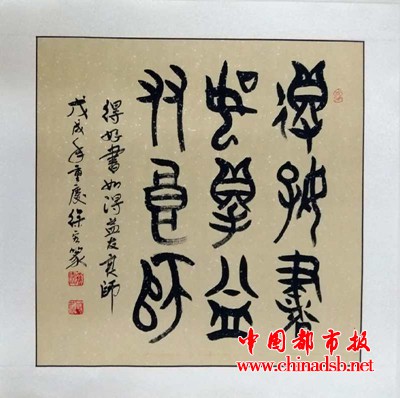 得好書
如得益
友良師
得好書如得益友良師
戊戌年重慶徐篆
中国都市报
www.chinadsb.net